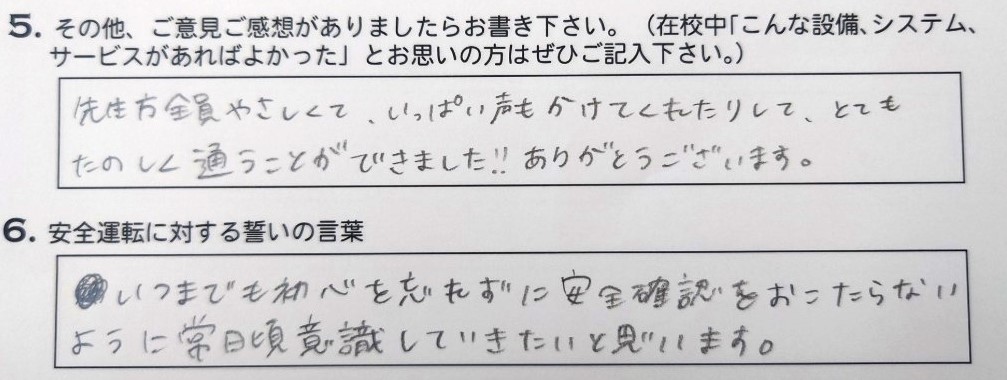 5. その他、ご意見ご感想がありましたらお書き下さい。（在校中「こんな設備、システム、
サービスがあればよかった」とお思いの方はぜひご記入下さい。）
先生方全員やさしくて、いっぱい声もかけてくれたりして、とても
たのしく通うことができました!!ありがとうございます。
6. 安全運転に対する誓いの言葉
いつまでも初心を忘れずに安全確認をおこたらない
ように常日頃意識していきたいと思います。